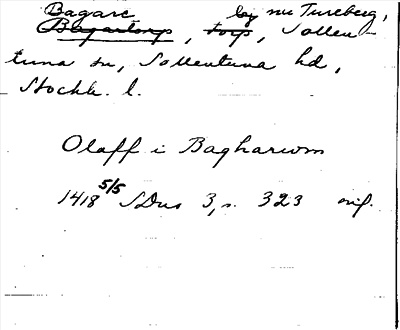 Bagare by nu Tureberg,
Bagartorp, torp, Sollen-
tuna sn, Sollentuna hd,
Stockh. l.
Olaff i Bagharwm
1418 5/5 SDns 3, s. 323 orig.